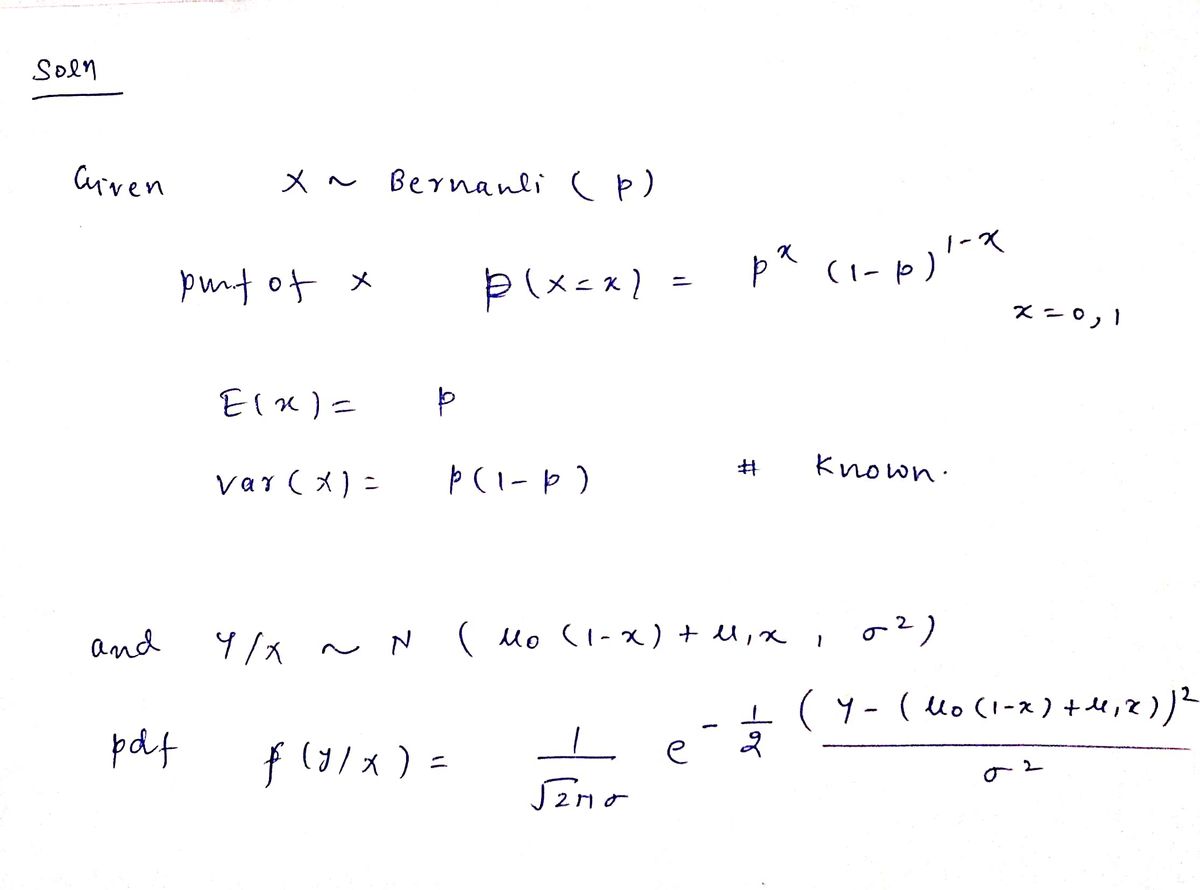 Soln
Given X ~ Bernauli (p)
pmf of x p(x=x) = p^x (1-p)^{1-x}
x=0,1
E(x)= p
var(x)= p(1-p) # Known.
and Y/x ~ N ( μ0 (1-x) + μ1x , σ^2)
pdf f(y/x) = \frac{1}{\sqrt{2π} σ} e^{-\frac{1}{2} \frac{(y-(μ0(1-x)+μ1x))^2}{σ^2}}